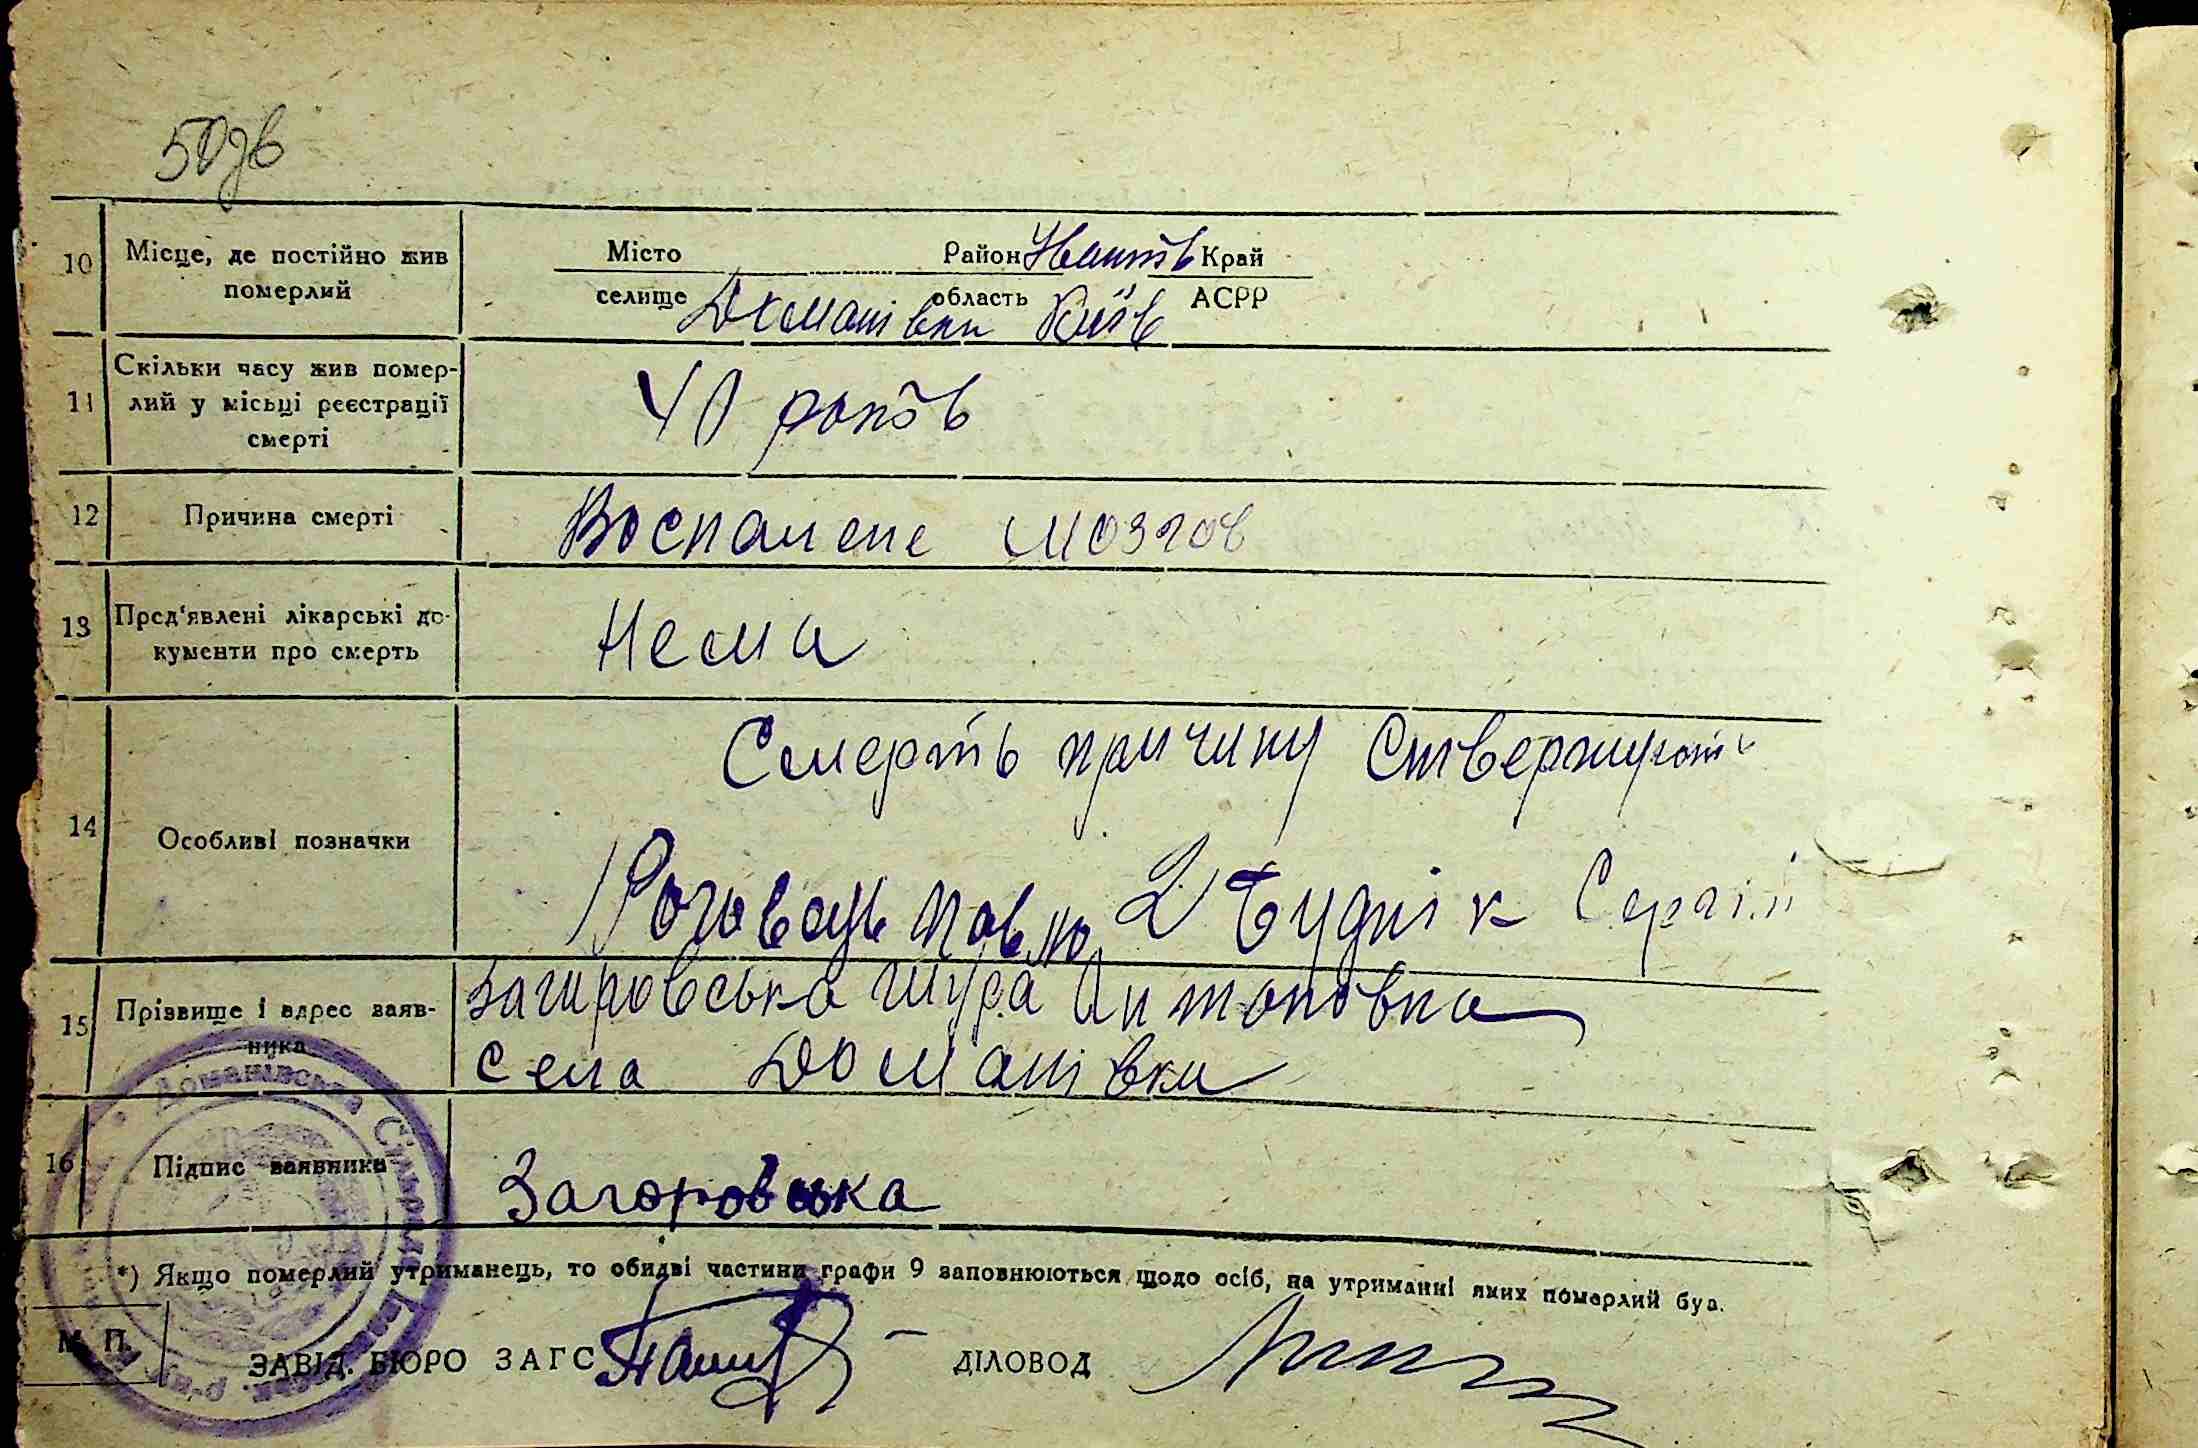 50зв
10 Місце, де постійно жив померлий
Місто Район Край
селище Доманівки область Київ АСРР
11 Скільки часу жив помер-
лий у місьці реєстрації
смерті
40 років
12 Причина смерті Воспалене мозгов
13 Пред'явлені лікарські до-
кументи про смерть
Нема
14 Особливі позначки
Смерть причину
Роговець Павло 2 Буднік Сергій
15 Прізвище і адрес заяв-
ника
Загоровська Шура Антоновна
Села Доманівки
16 Підпис заявника Загоровська
*) Якщо померлий утриманець, то обидві частини графи 9 заповнюються щодо осіб, на утриманні яких померлий був.
М. П. ЗАВІД. БЮРО ЗАГС ДІЛОВОД
Доманівська Сільрада